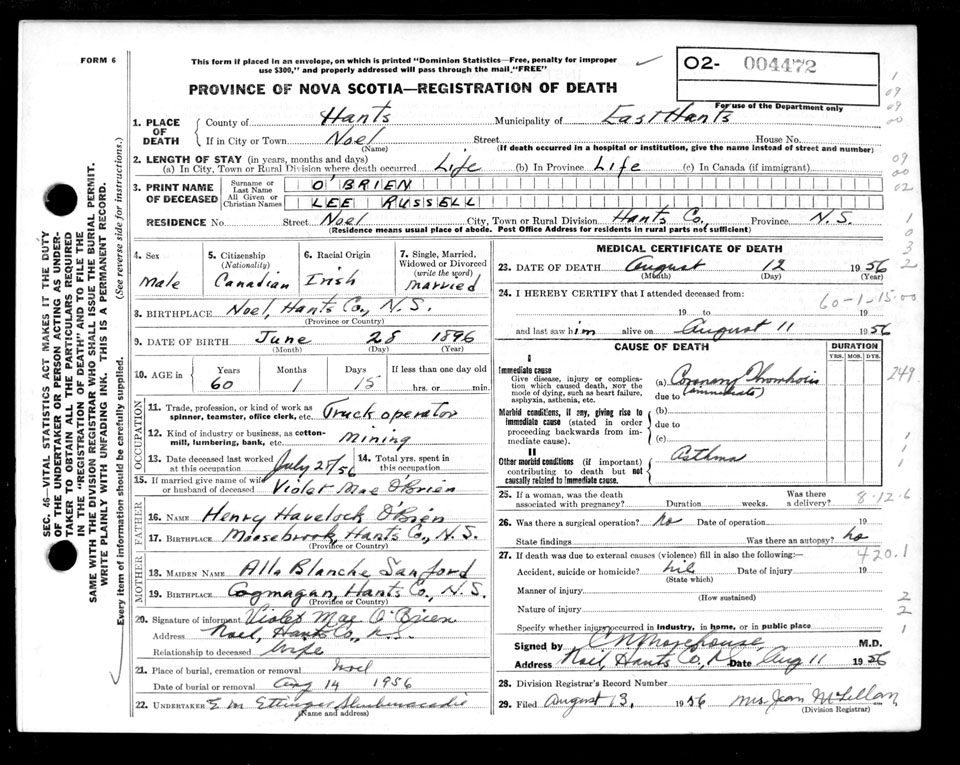 FORM 6
This form if placed in an envelope, on which is printed "Dominion Statistics—Free, penalty for improper
use $300," and properly addressed will pass through the mail "FREE"
O2- 004472
For use of the Department only
PROVINCE OF NOVA SCOTIA—REGISTRATION OF DEATH
1. PLACE OF DEATH County of Hants Municipality of East Hants
If in City or Town Noel Street House No.
(Name) (If death occurred in a hospital or institution, give the name instead of street and number)
2. LENGTH OF STAY (in years, months and days)
(a) In City, Town or Rural Division where death occurred Life (b) In Province Life (c) In Canada (if immigrant)
3. PRINT NAME OF DECEASED Surname or Last Name O'BRIEN
All Given or Christian Names LEE RUSSELL
RESIDENCE No. Street Noel City, Town or Rural Division Hants Co. Province N.S.
(Residence means usual place of abode. Post Office Address for residents in rural parts not sufficient)
4. Sex Male
5. Citizenship (Nationality) Canadian
6. Racial Origin Irish
7. Single, Married, Widowed or Divorced (write the word) Married
8. BIRTHPLACE Noel, Hants Co., N.S.
(Province or Country)
9. DATE OF BIRTH June 28 1896
(Month) (Day) (Year)
10. AGE in Years Months Days If less than one day old
60 1 15 hrs. or min.
OCCUPATION
11. Trade, profession, or kind of work as spinner, teamster, office clerk, etc. Truck operator
12. Kind of industry or business, as cotton-mill, lumbering, bank, etc. Mining
13. Date deceased last worked at this occupation July 25/56
14. Total yrs. spent in this occupation
15. If married give name of wife or husband of deceased Violet Mae O'Brien
FATHER
16. NAME Henry Havelock O'Brien
17. BIRTHPLACE Moosebrook, Hants Co., N.S.
(Province or Country)
MOTHER
18. MAIDEN NAME Alla Blanche Sanford
19. BIRTHPLACE Cogmagan, Hants Co., N.S.
(Province or Country)
20. Signature of informant Violet Mae O'Brien
Address Noel, Hants Co., N.S.
Relationship to deceased Wife
21. Place of burial, cremation or removal Noel
Date of burial or removal Aug 14 1956
22. UNDERTAKER E M Ettinger Shubenacadie
(Name and address)
MEDICAL CERTIFICATE OF DEATH
23. DATE OF DEATH August 12 1956
(Month) (Day) (Year)
24. I HEREBY CERTIFY that I attended deceased from:
60-1-15-00
19 to 19
and last saw him alive on August 11 1956
CAUSE OF DEATH
DURATION
YRS. MOS. DYS.
I
Immediate cause
Give disease, injury or complication which caused death, NOT the mode of dying, such as heart failure, asphyxia, asthenia, etc.
(a) Coronary Thrombosis
due to (immediate)
249
Morbid conditions, if any, giving rise to immediate cause (stated in order proceeding backwards from immediate cause).
(b)
due to
(c)
II
Other morbid conditions (if important) contributing to death but not causally related to immediate cause.
Asthma
25. If a woman, was the death associated with pregnancy? Duration weeks. Was there a delivery?
8-12-6
26. Was there a surgical operation? no Date of operation 19
State findings Was there an autopsy? no
27. If death was due to external causes (violence) fill in also the following:—
420.1
Accident, suicide or homicide? nil Date of injury 19
(State which)
Manner of injury
(How sustained)
Nature of injury
Specify whether injury occurred in industry, in home, or in public place
Signed by C N Morehouse, M.D.
Address Noel, Hants Co, N Date Aug 11 1956
28. Division Registrar's Record Number
29. Filed August 13, 1956 Mrs. Jean McLellan
(Division Registrar)
SEC. 46—VITAL STATISTICS ACT MAKES IT THE DUTY
OF THE UNDERTAKER OR PERSON ACTING AS UNDER-
TAKER TO OBTAIN ALL THE PARTICULARS REQUIRED
IN THE "REGISTRATION OF DEATH" AND TO FILE THE
SAME WITH THE DIVISION REGISTRAR WHO SHALL ISSUE THE BURIAL PERMIT.
WRITE PLAINLY WITH UNFADING INK. THIS IS A PERMANENT RECORD.
Every item of information should be carefully supplied. (See reverse side for instructions.)
1
09
09
00
09
00
02
1
0
3
2
1
1
1
2
2
1